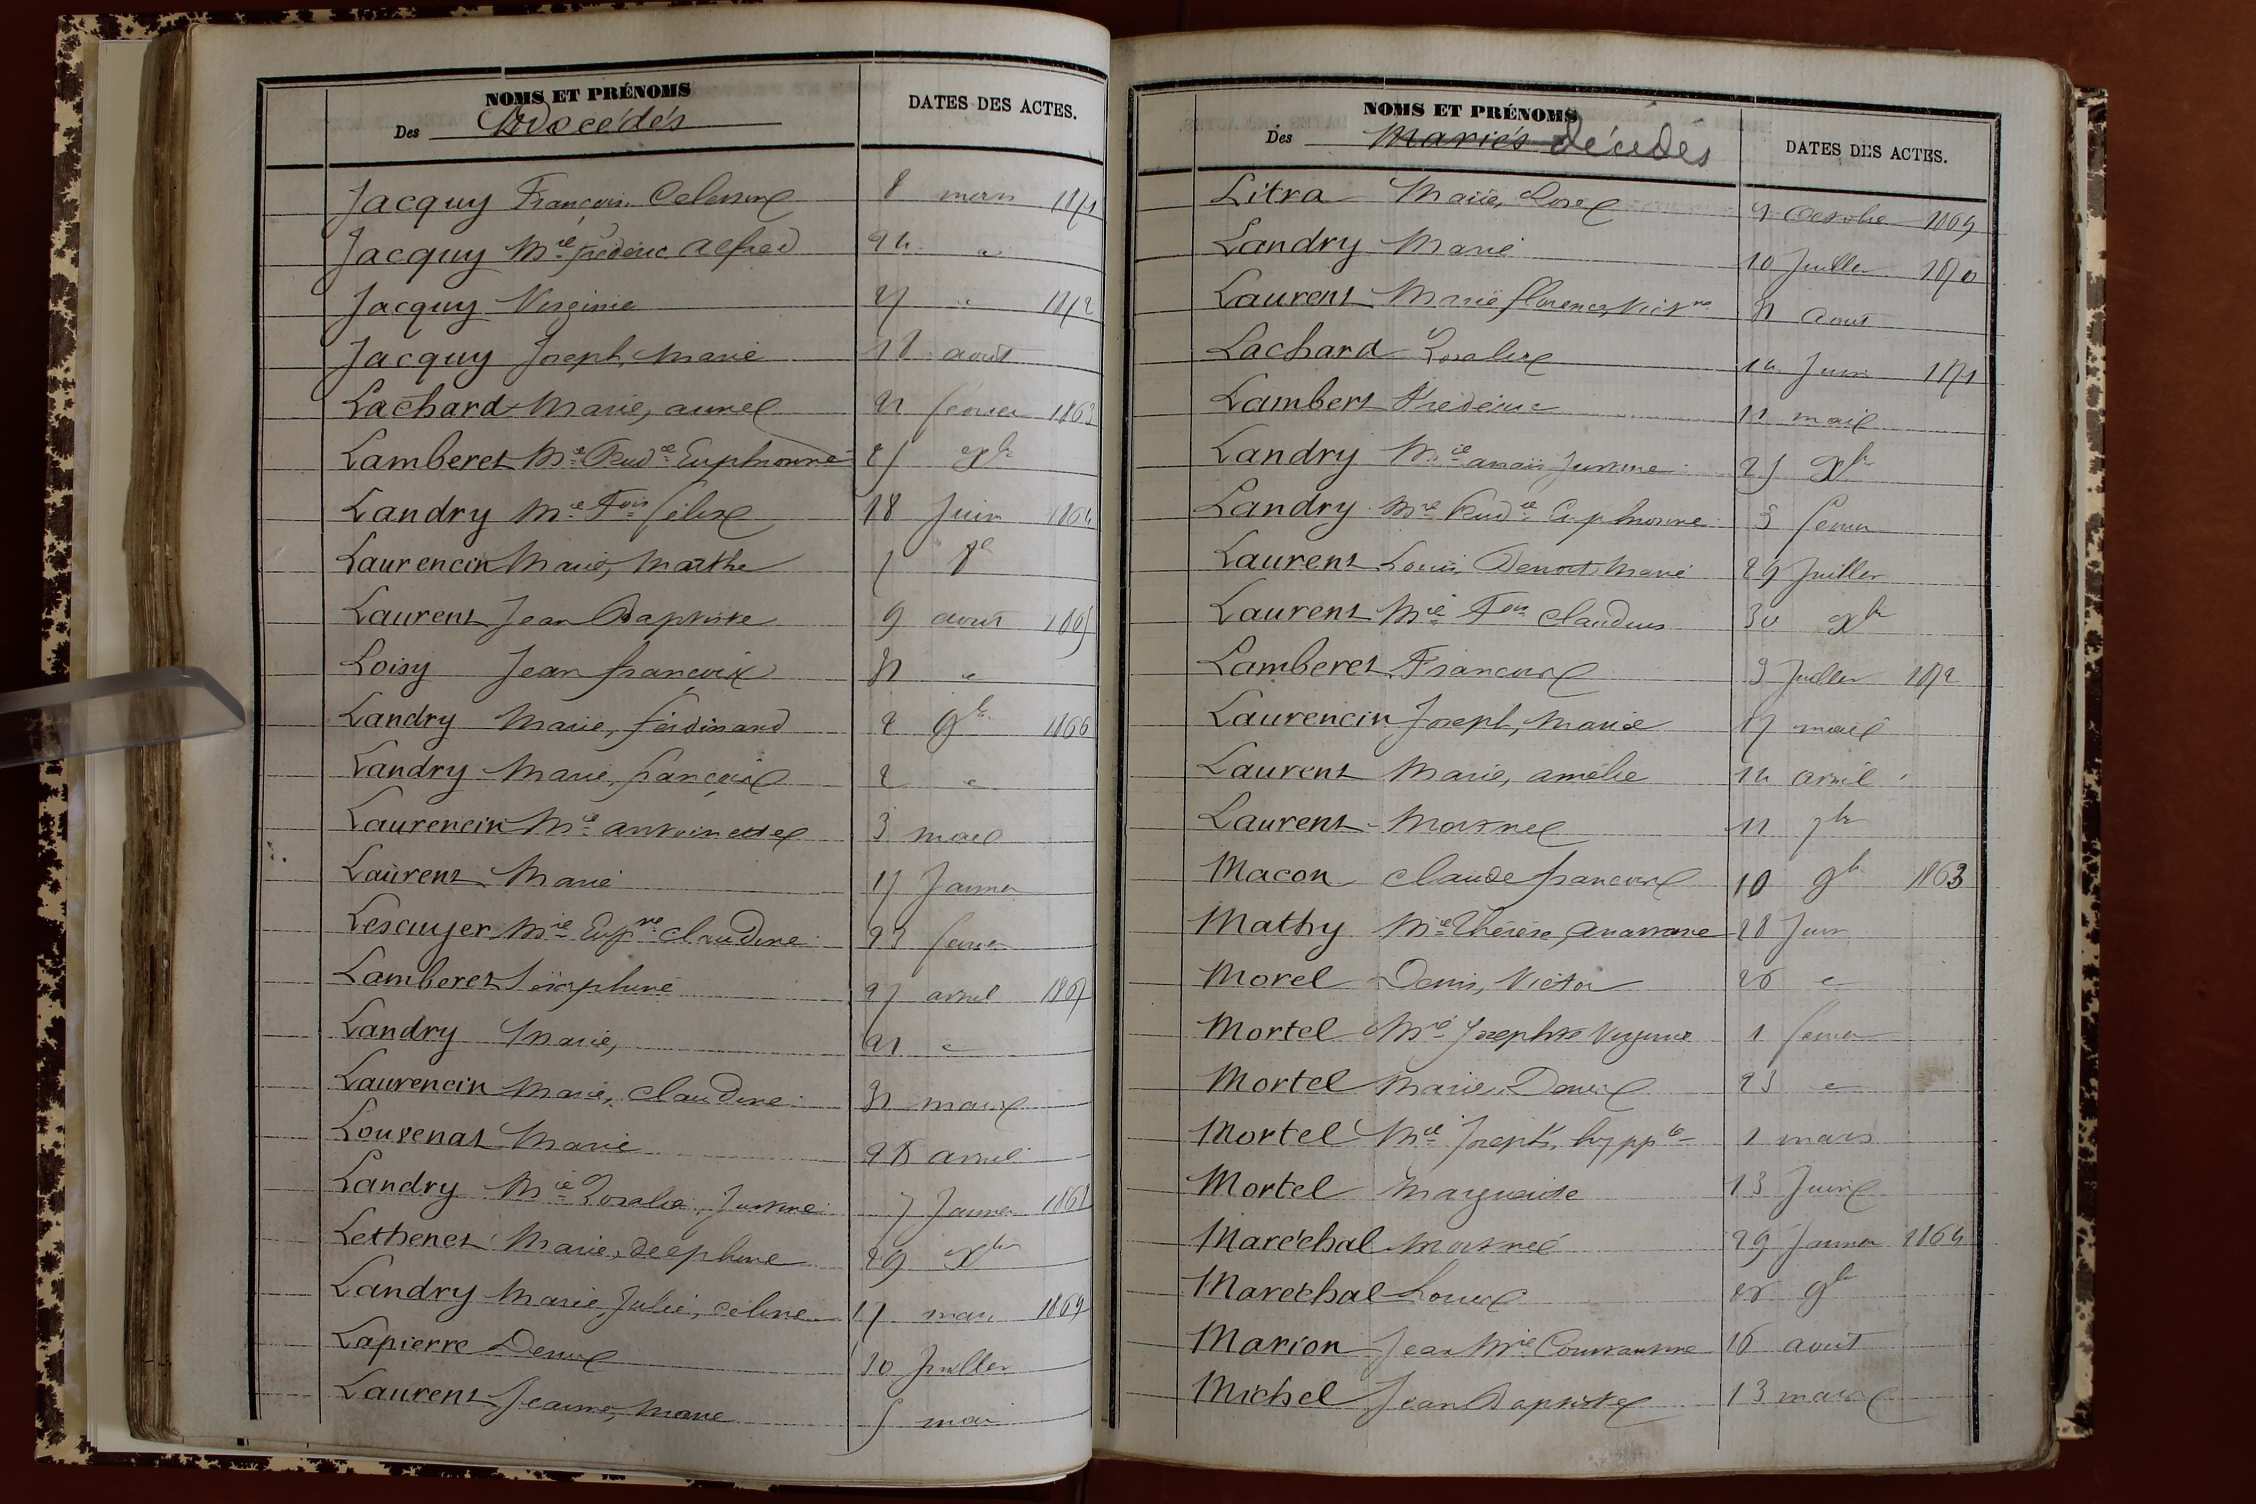 NOMS ET PRÉNOMS
DATES DES ACTES.
Des Décédés
Jacquy François Celestine 8 mars 1871
Jacquy Mie frederic alfred 24 "
Jacquy Virginie 27 " 1872
Jacquy Joseph, Marie 18 août
Lachard Marie, aimée 21 fevrier 1863
Lamberet Mie Euphrosine 25 Xbr
Landry Mie Fois félix 18 Juin 1864
Laurencin Marie, Marthe
Laurent Jean Baptiste 9 août 1865
Loisy Jean françois 31 "
Landry Marie, ferdinand 2 9br 1866
Landry Marie, françoise 2 "
Laurencin Mie antoinette 3 mai
Laurent Marie 17 Janvier
Lescuyer Mie claudine 23 fevrier
Lamberet Séraphine 27 avril 1867
Landry Marie, 21 "
Laurencin Marie, claudine 31 mars
Louvenat Marie 28 avril
Landry Mie Rosalie, Justine 7 Janvier 1868
Lethenet Marie, delphine 29 Xbr
Landry Marie Julie, céline 17 mars 1869
Lapierre Denis 30 Juillet
Laurent Jeanne, Marie 5 mai
NOMS ET PRÉNOMS
DATES DES ACTES.
Des Mariés décédés
Litra Marie, Rose 9 Octobre 1869
Landry Marie 10 Juillet 1870
Laurent Marie florence, Victne 31 aout
Lachard Rosalie 14 Juin 1871
Lambert Frédéric 11 mai
Landry Mie anaïs Justine 25 Xbr
Landry Mie Euphrosine 3 fevrier
Laurent Louis, Benoit Marie 29 Juillet
Laurent Mie Fois claudius 30 Xbr
Lamberet Françoise 3 Juillet 1872
Laurencin Joseph, Marie 17 mai
Laurent Marie, amélie 14 avril
Laurent Mort né 11 7br
Macon claude françois 10 9br 1863
Mathy Mie Thérèse, 28 Juin
Morel Denis, Victor 26 "
Mortel Mie Josephte Virginie 1 fevrier
Mortel Marie Denise 23 "
Mortel Mie Joseph, hyppte 1 mars
Mortel Marguerite 13 Juin
Maréchal Mort né 29 Janvier 1864
Maréchal Louis 26 9br
Marion Jean Mie Constantine 16 aout
Michel Jean Baptiste 13 mars